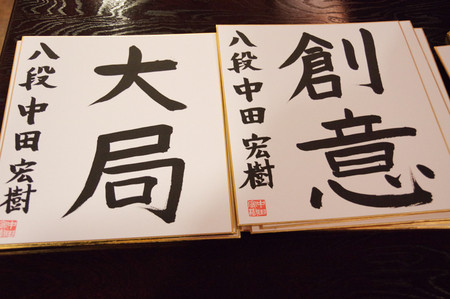 大局
八段 中田 宏樹
創意
八段 中田 宏樹